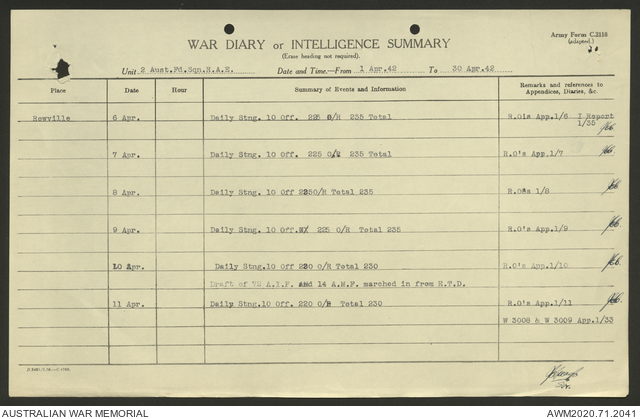 Army Form C.2118
(adapted.)
WAR DIARY or INTELLIGENCE SUMMARY
(Erase heading not required).
Unit 2 Aust.Fd.Sqn.R.A.E. Date and Time—From 1 Apr.42 To 30 Apr.42
Place Date Hour Summary of Events and Information Remarks and references to Appendices, Diaries, &c.
Rowville 6 Apr. Daily Stng. 10 Off. 225 O/R 235 Total R.O's App.1/6 I Report
1/35
7 Apr. Daily Stng. 10 Off. 225 O/R 235 Total R.O's App.1/7
8 Apr. Daily Stng. 10 Off 225O/R Total 235 R.O's 1/8
9 Apr. Daily Stng. 10 Off. 225 O/R Total 235 R.O's App.1/9
10 Apr. Daily Stng.10 Off 220 O/R Total 230 R.O's App.1/10
Draft of 72 A.I.F. and 14 A.M.F. marched in from E.T.D.
11 Apr. Daily Stng.10 Off. 220 O/R Total 230 R.O's App.1/11
W 3008 & W 3009 App.1/33
AUSTRALIAN WAR MEMORIAL AWM2020.71.2041